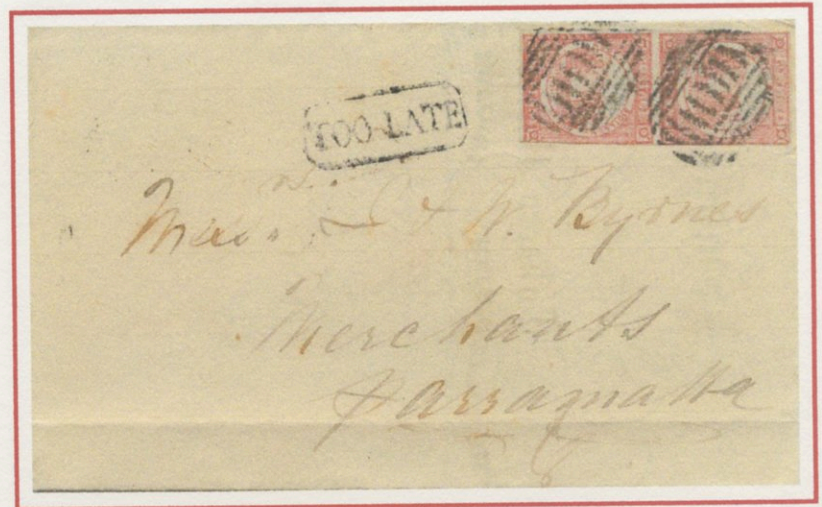 TOO-LATE
& W. Byrnes
Merchants
Parramatta